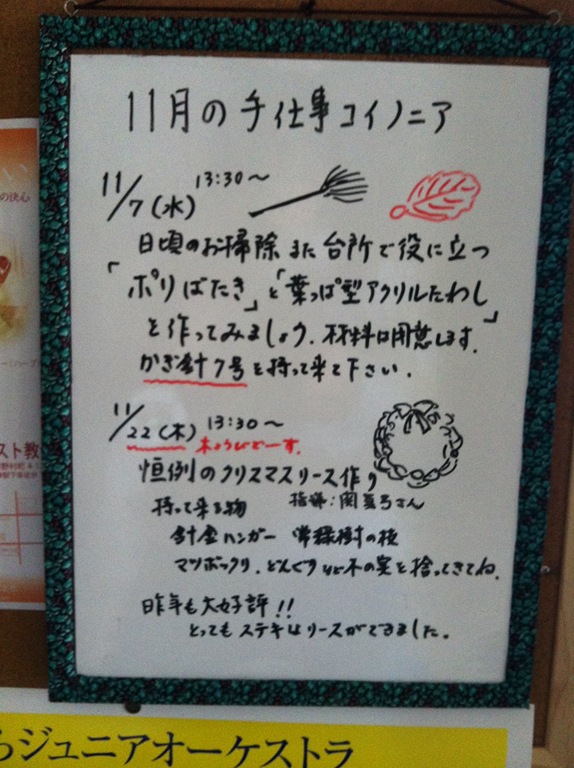 11月の手仕事コイノニア
11/7(水) 13:30〜
日頃のお掃除また台所で役に立つ
「ポリばたき」と「葉っぱ型アクリルたわし」
を作ってみましょう。材料は用意します。
かぎ針7号を持って来て下さい。
11/22(木) 13:30〜
木ようびでーす。
恒例のクリスマスリース作り
持って来る物
指導:関
さん
針金ハンガー 常緑樹の枝
マツボックリ、どんぐりなど木の実を捨ってきてね。
昨年も大好評!!
とってもステキなリースができました。
い
の決心
スト教
ジュニアオーケストラ